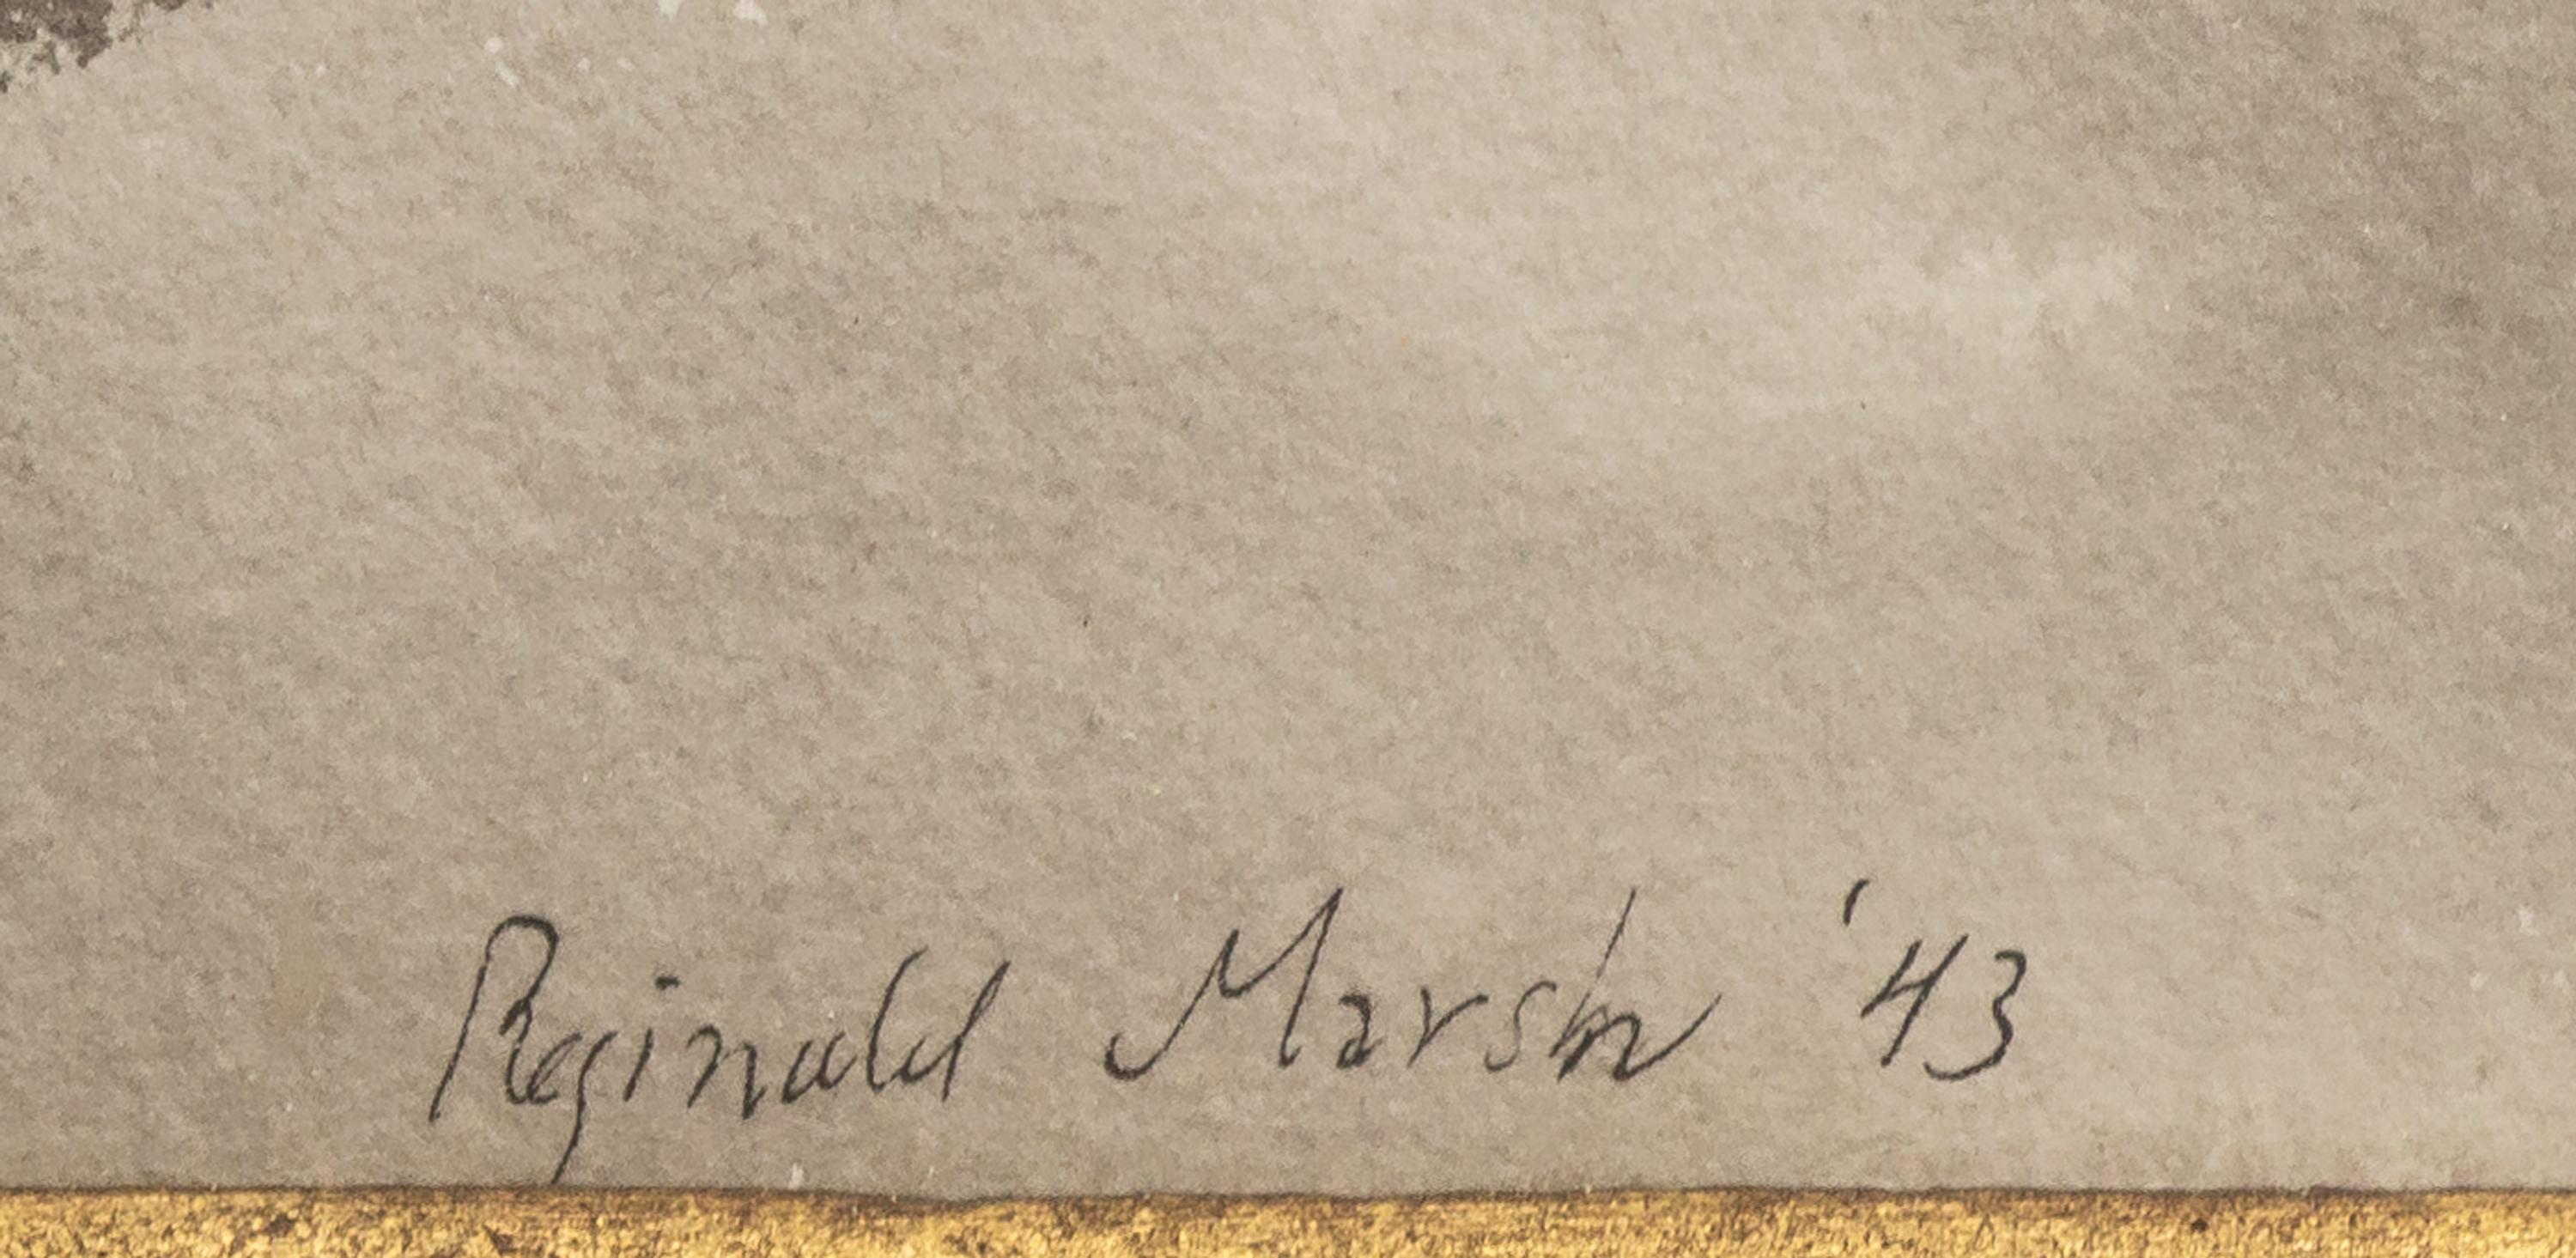 Reginald Marsh '43